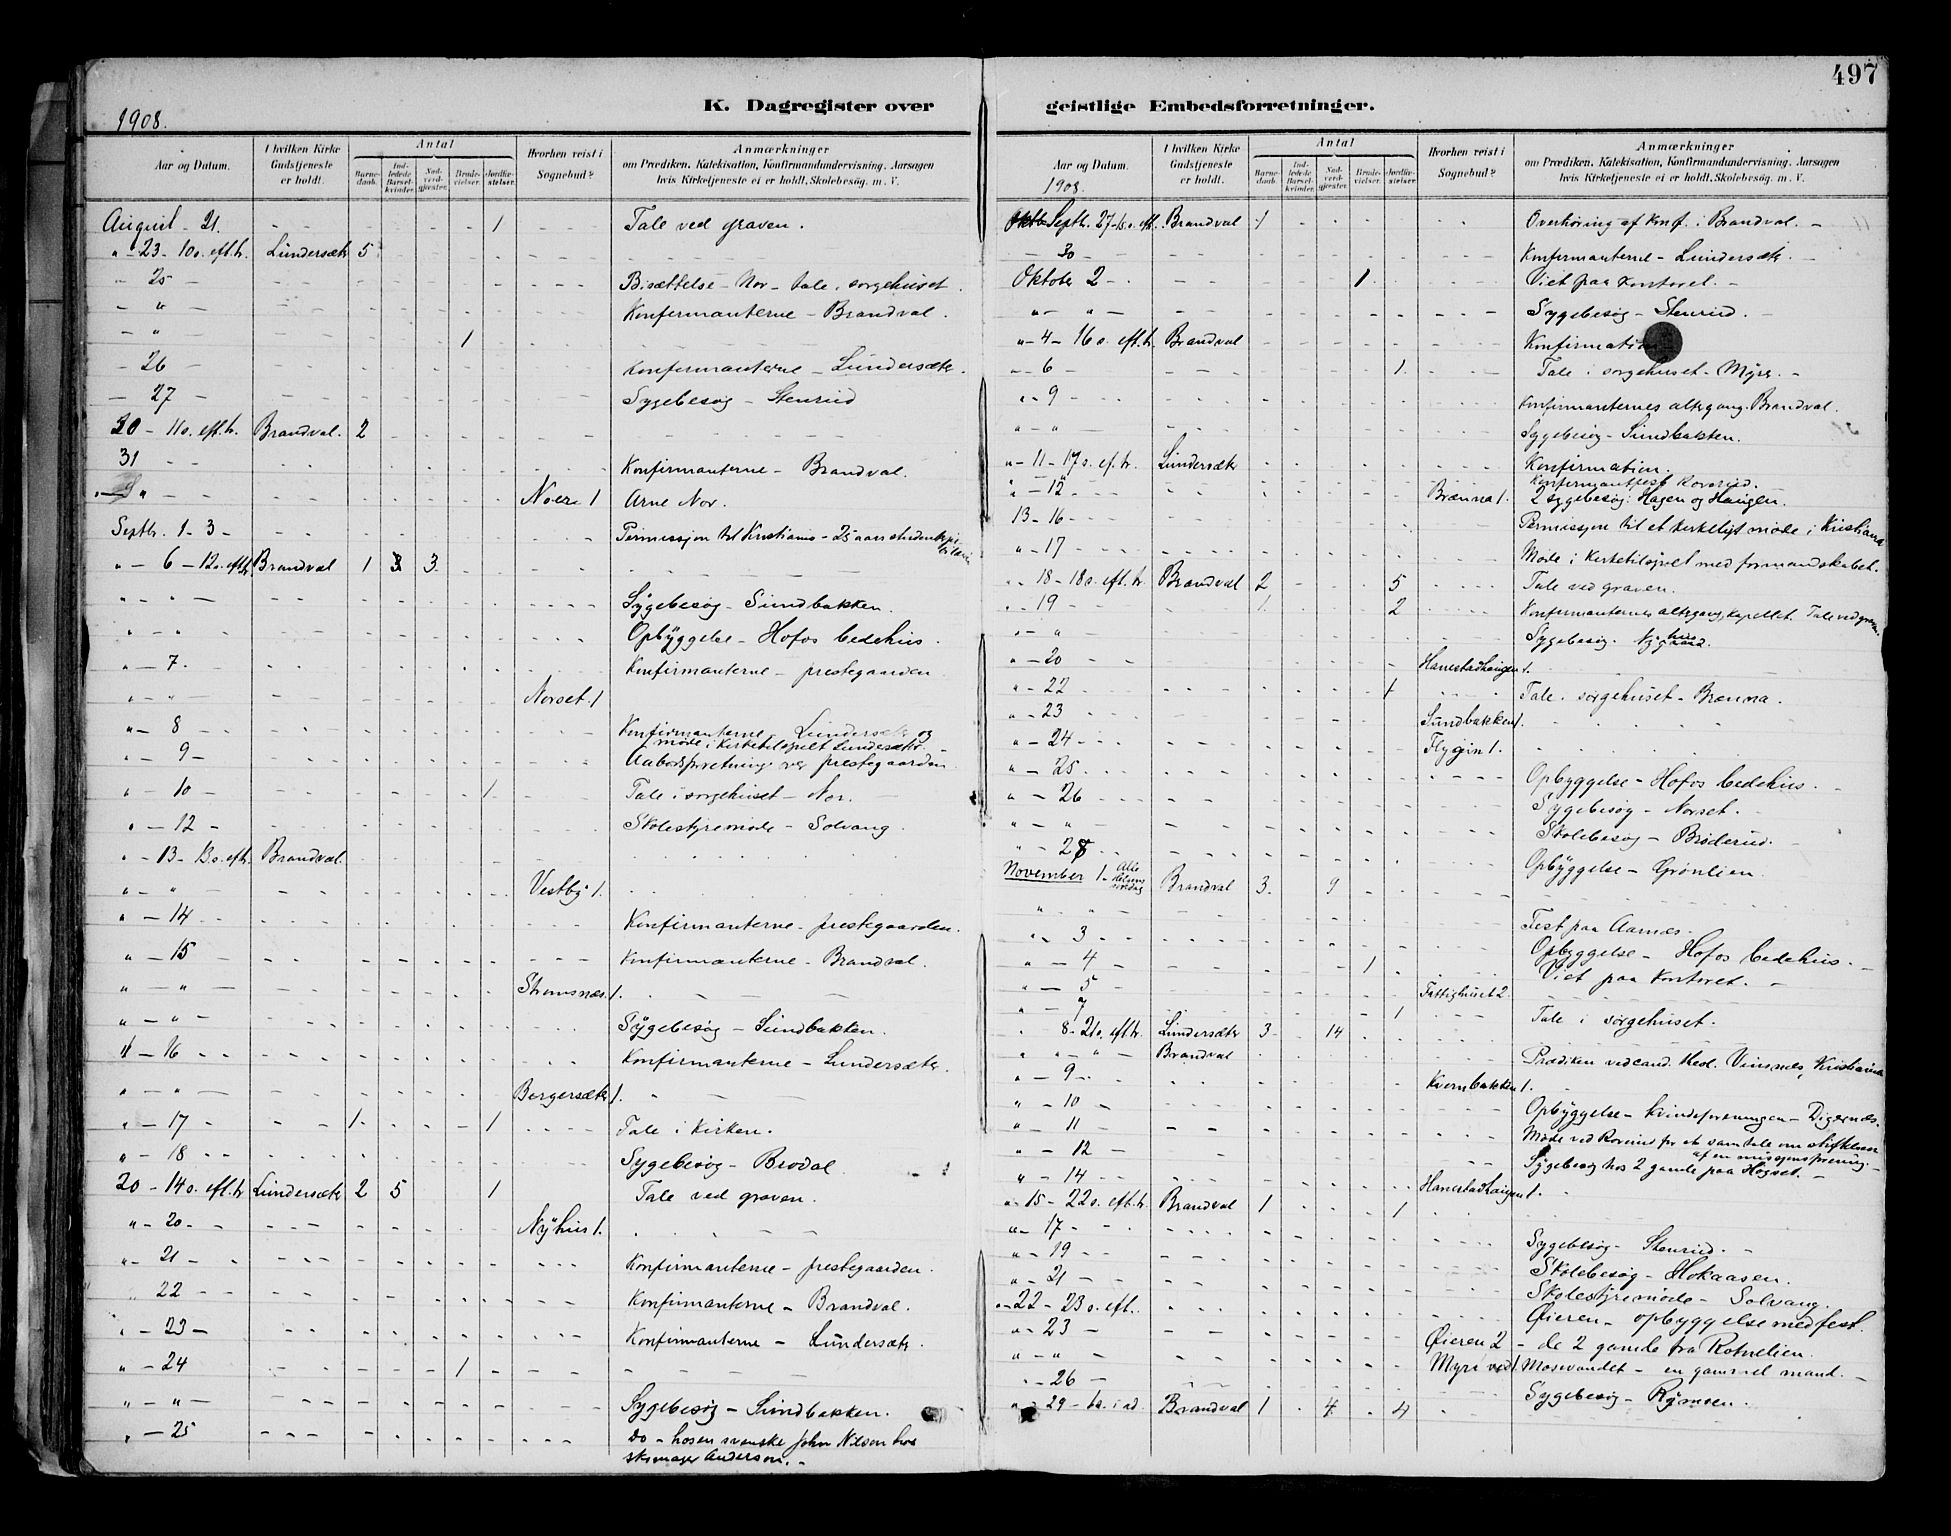 497
K. Dagregister over geistlige Embedsforretninger.
1908.
Aar og Datum.
I hvilken Kirke Gudstjeneste er holdt.
Antal
Barnedaab.
Indledede Barselkvinder.
Nadverdgjester.
Brudevielser.
Jordfæstelser.
Hvorhen reist i Sognebud?
Anmærkninger
om Prædiken, Katekisation, Konfirmandundervisning, Aarsagen hvis Kirketjeneste ei er holdt, Skolebesøg, m. V.
August - 21. 1 Tale ved graven.
" - 23 - 10 s. eft. tr. Lundersæter 5
- 25 - Bisættelse - Nor - tale i sorgehuset.
- " - Konfirmanterne - Brandval.
- " 1
- 26 - Konfirmanterne - Lundersæter.
- 27 - Sygebesøg - Stenrud
30 - 11 s. eft. tr. Brandval. 2
31 - - Konfirmanterne - Brandval.
" - Noer 1 Arne Nor.
Septbr. 1 - 3 - Permissjon til Kristiania - 25 aars
" - 6 - 12 s. eft. tr Brandval 1 3 3
" - " - Sygebesøg - Sundbakken.
" - " - Opbyggelse - Hofos bedehus.
" - 7 - Konfirmanterne - prestegaarden
" - " - Norset. 1
" - 8 - Konfirmanterne - Lundersæter og
møde i Kirketilsynet Lundersæter.
" - 9 - Aabodsforretning over prestegaarden
" - 10 - 1 Tale i sorgehuset - Nor.
" - 12 - Skolestyremøde - Solvang.
" - 13 - 13. s. eft. Brandval.
" - " - Vestby 1.
" - 14 - Konfirmanterne - prestegaarden.
" - 15 Konfirmanterne - Brandval.
" - " - Strømsnæs. 1.
" - " - Sygebesøg - Sundbakken.
" - 16 - - Konfirmanterne - Lundersæter.
" - " - Bergersæter 1.
" - 17 - 1. 1 Tale i Kirken.
" - 18 - - Sygebesøg - Brodal
20 - 14 s. eft. tr Lundersæter 2 5 1 Tale ved graven.
" - 20 - - Nyhus 1.
" - 21 - Konfirmanterne - prestegaarden.
" 22 - - Konfirmanterne - Brandval.
" - 23 - Konfirmanterne - Lundersæter.
" - 24 1
" - " - Sygebesøg - Sundbakken.
" - 25 Do - hos en svenske John Nilson hos
skomager Anderson. -
Aar og Datum.
1908.
I hvilken Kirke Gudstjeneste er holdt.
Antal
Barnedaab.
Indledede Barselkvinder.
Nadverdgjester.
Brudevielser.
Jordfæstelser.
Hvorhen reist i Sognebud?
Anmærkninger
om Prædiken, Katekisation, Konfirmandundervisning, Aarsagen hvis Kirketjeneste ei er holdt, Skolebesøg, m. V.
Septbr. 27 - 15. s. eft. Brandval 1 Overhøring af Konf. i Brandval. -
- 30 - Konfirmanterne - Lundersæter. -
Oktober 2 - 1 Viet paa Kontoret. -
" - " - Sygebesøg - Stenrud. -
" - 4 - 16 s. eft. tr. Brandval Konfirmation
" - 6 - 1. Tale i sorgehuset - Myre. -
" - 9 Konfirmanternes altergang. Brandval.
" - " Sygebesøg - Sundbakken.
" - 11 - 17 s. ef. tr. Lundersæter Konfirmation.
" - 12 - Brænna 1. Konfirmantfest Rovsrud. -
2 sygebesøg: Hagen og Haugen.
13 - 16 - Permissjon til et kirkeligt møde i Kristiania
" - 17 - Møde i Kirketilsynet med formandskabet.
" - 18 - 18 s. eft. tr. Brandval 2 5 Tale ved graven.
" - 19 - 1 2 Konfirmanternes altergang, kapellet. Tale ved graven.
" - " Sygebesøg. Ny
" - 20 - Hanestadhaugen 1.
" - 22 1 Tale i sorgehuset - Brænna.
" - 23 Sundbakken 1.
" - 24 - Flygin 1.
" - 25 - Opbyggelse - Hofos bedehus.
" - 26 - Sygebesøg - Norset. -
" - " - Skolebesøg - Brøderud. -
" - 28 Opbyggelse - Grønlien.
November 1 - Alle helgens søndag Brandval 3. 9
" - " - Fest paa Aarnæs.
" - 3 - Opbyggelse - Hofos bedehus. -
" - 4 - 1 Viet paa Kontoret. -
" - 5 - Fattighuset 2.
" - 7 1 Tale i sorgehuset.
" 8 - 21 s. eft. tr. Lundersæter 3 14
" " - " - Brandval Prædiken ved cand. theol. Vinsnes, Kristiania
" - 9 - Kvernbakken 1.
" - 10 - Opbyggelse - kvindeforeningen - Digernæs.
" - 11 - Møde ved Rovsrud for at samtale om stiftelsen
af en misjonsforening. -
" - 12 - Sygebesøg hos 2 gamle paa Hogset. -
" - 14 - Hanestadhaugen 1.
" - 15 - 22 s. eft. tr. Brandval 1 1
" - 17 - Sygebesøg - Stenrud. -
" - 19 - Skolebesøg - Hokaasen.
" - 21 - Skolestyremøde - Solvang.
" - 22 - 23 s. eft. Øieren - opbyggelse med fest.
" - 23 - Øieren 2 - de 2 gamle fra Rotnelien.
" - " - Myri ved 1 Møsevandet - en gammel mand. -
" - 26 - Sygebesøg - Rymoen.
" - 29 - 1 s. i ad. Brandval 1 4 4